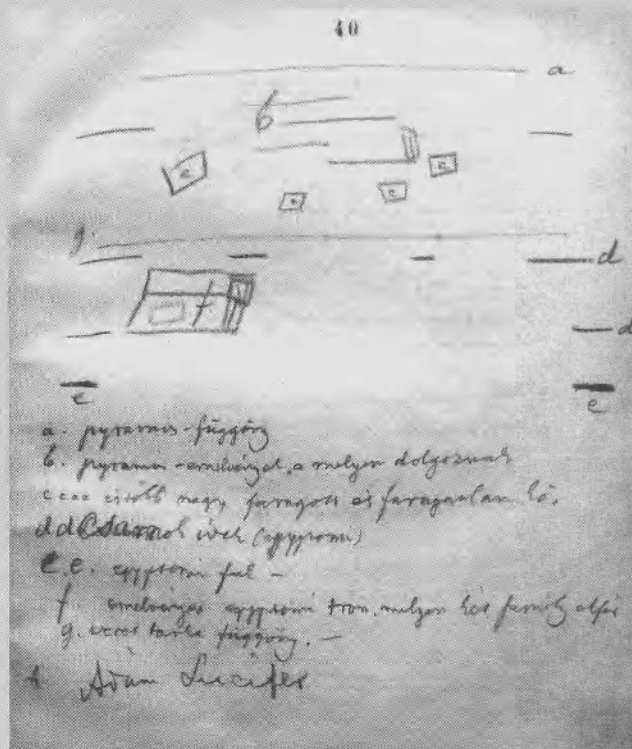 40
a
b
c
c
c
c
g.
d
f
d
e
e
a. pyramis-függöny
b. pyramis-emelvényzet, a melyen dolgoznak
cccc és több nagy faragott és faragatlan kő.
dd Csarnok ívek (egyptomi)
e.e. egyptomi fal —
f emelvényes egyptomi trón, melyen két személy elfér
g. veres tarka függöny. —
Ádám Lucifer